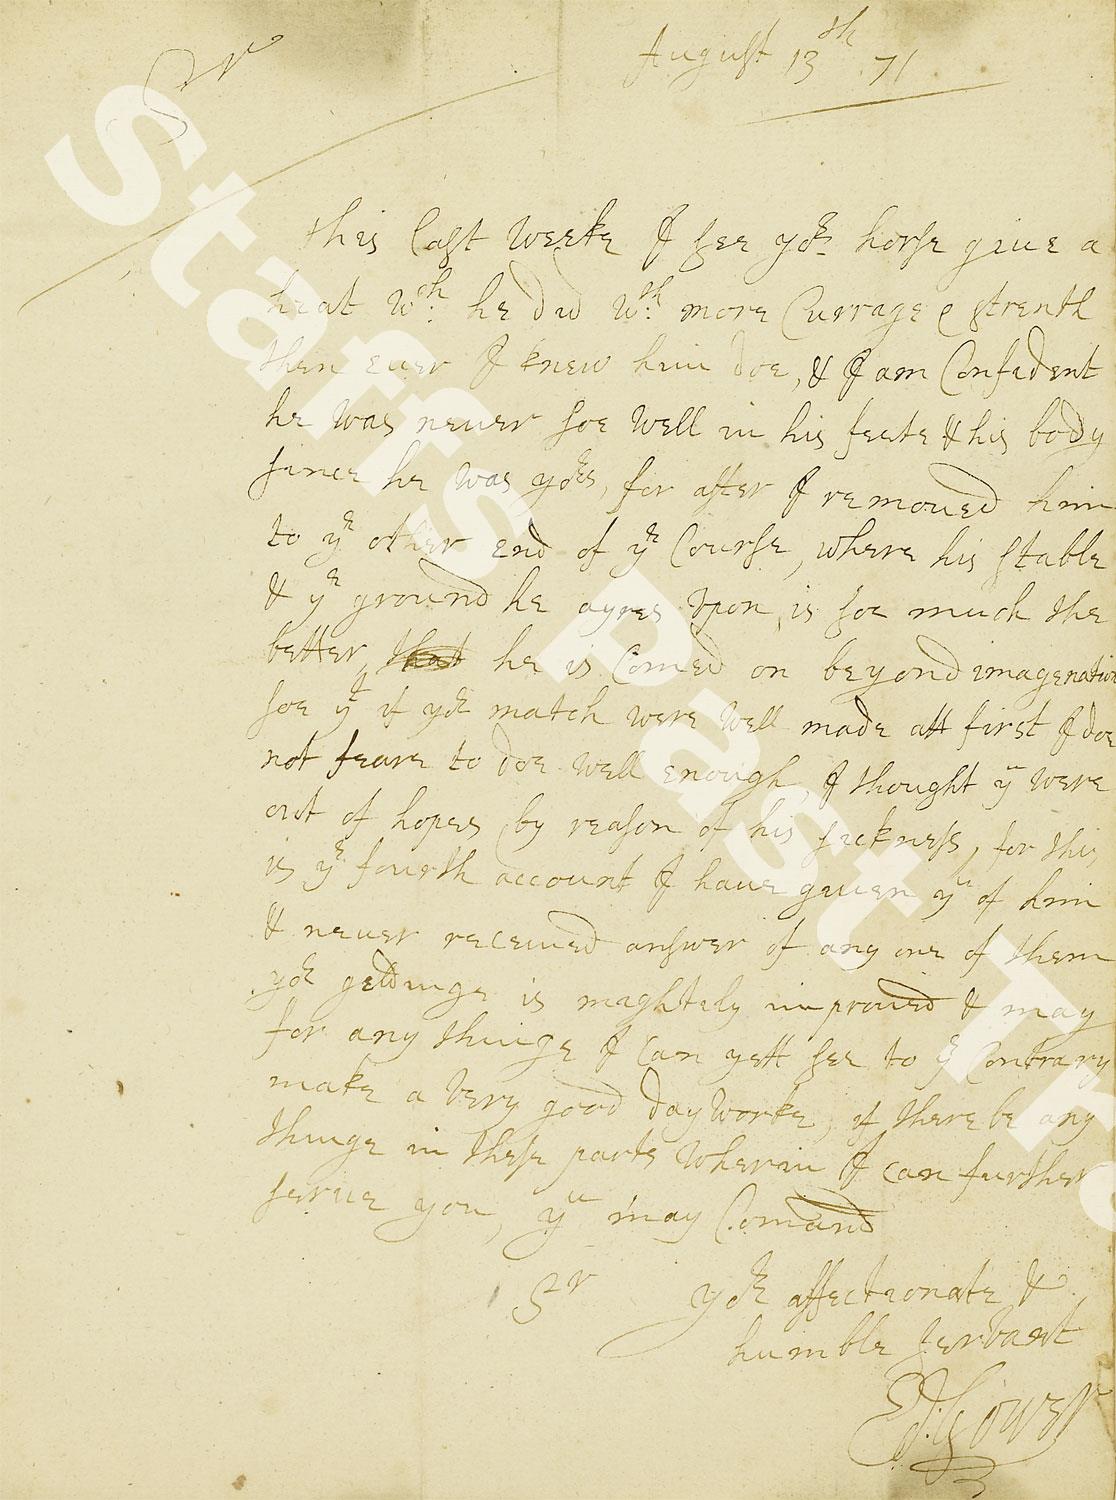 Sr
August 13th 71
this last weeke I see yor horse giue a
heat wch he did wth more Currage & strenth
then euer I knew him doe, & I am Confident
he was neuer soe well in his feete & his body
since he was yors, for after I remoued him
to ye other end of ye Course, where his stable
& ye ground he ayres vpon, is soe much the
better, that he is Comed on beyond imagenation
soe yt if yor match were well made att first I doe
not feare to doe well enough, I thought yu were
out of hopes, by reason of his sickness, for this
is ye fourth account I haue giuen yu of him
& neuer receiued answer of any one of them
yor geldinge is mightely improued & may
for any thinge I can yett see to ye Contrary
make a very good day worke, if there be any
thinge in these parts wherin I can further
serue you, yu may Comand
Sr yor affectionate &
humble servant
Ed: Gower
Staffs Past Tr